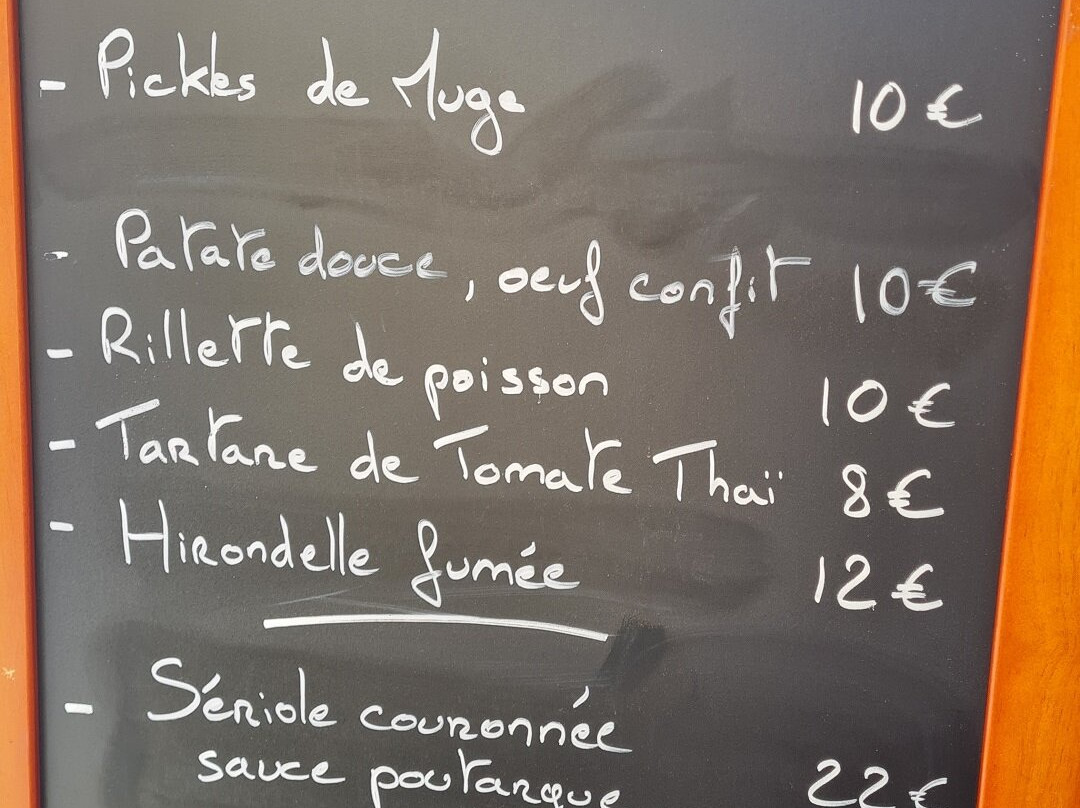 - Pickles de Muge 10 €
- Patate douce, oeuf confit 10 €
- Rillette de poisson 10 €
- Tartare de Tomate Thaï 8 €
- Hirondelle fumée 12 €
- Sériole couronnée
sauce poutarque 22 €